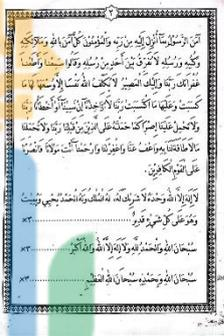 ٢
آمَنَ الرَّسُولُ بِمَا أُنْزِلَ إِلَيْهِ مِنْ رَبِّهِ وَالْمُؤْمِنُونَ كُلٌّ آمَنَ بِاللهِ وَمَلَائِكَتِهِ
وَكُتُبِهِ وَرُسُلِهِ لَا نُفَرِّقُ بَيْنَ أَحَدٍ مِنْ رُسُلِهِ وَقَالُوا سَمِعْنَا وَأَطَعْنَا
غُفْرَانَكَ رَبَّنَا وَإِلَيْكَ الْمَصِيرُ لَا يُكَلِّفُ اللهُ نَفْسًا إِلَّا وُسْعَهَا لَهَا مَا
كَسَبَتْ وَعَلَيْهَا مَا اكْتَسَبَتْ رَبَّنَا لَا تُؤَاخِذْنَا إِنْ نَسِينَا أَوْ أَخْطَأْنَا رَبَّنَا
وَلَا تَحْمِلْ عَلَيْنَا إِصْرًا كَمَا حَمَلْتَهُ عَلَى الَّذِينَ مِنْ قَبْلِنَا رَبَّنَا وَلَا تُحَمِّلْنَا
مَا لَا طَاقَةَ لَنَا بِهِ وَاعْفُ عَنَّا وَاغْفِرْ لَنَا وَارْحَمْنَا أَنْتَ مَوْلَانَا فَانْصُرْنَا
عَلَى الْقَوْمِ الْكَافِرِينَ.
لَا إِلَهَ إِلَّا اللهُ وَحْدَهُ لَا شَرِيكَ لَهُ، لَهُ الْمُلْكُ وَلَهُ الْحَمْدُ يُحْيِي وَيُمِيتُ
وَهُوَ عَلَى كُلِّ شَيْءٍ قَدِيرٌ ........ ×٣
سُبْحَانَ اللهِ وَالْحَمْدُ لِلهِ وَلَا إِلَهَ إِلَّا اللهُ وَاللهُ أَكْبَرُ ..... ×٣
سُبْحَانَ اللهِ وَبِحَمْدِهِ سُبْحَانَ اللهِ الْعَظِيمِ ........ ×٣